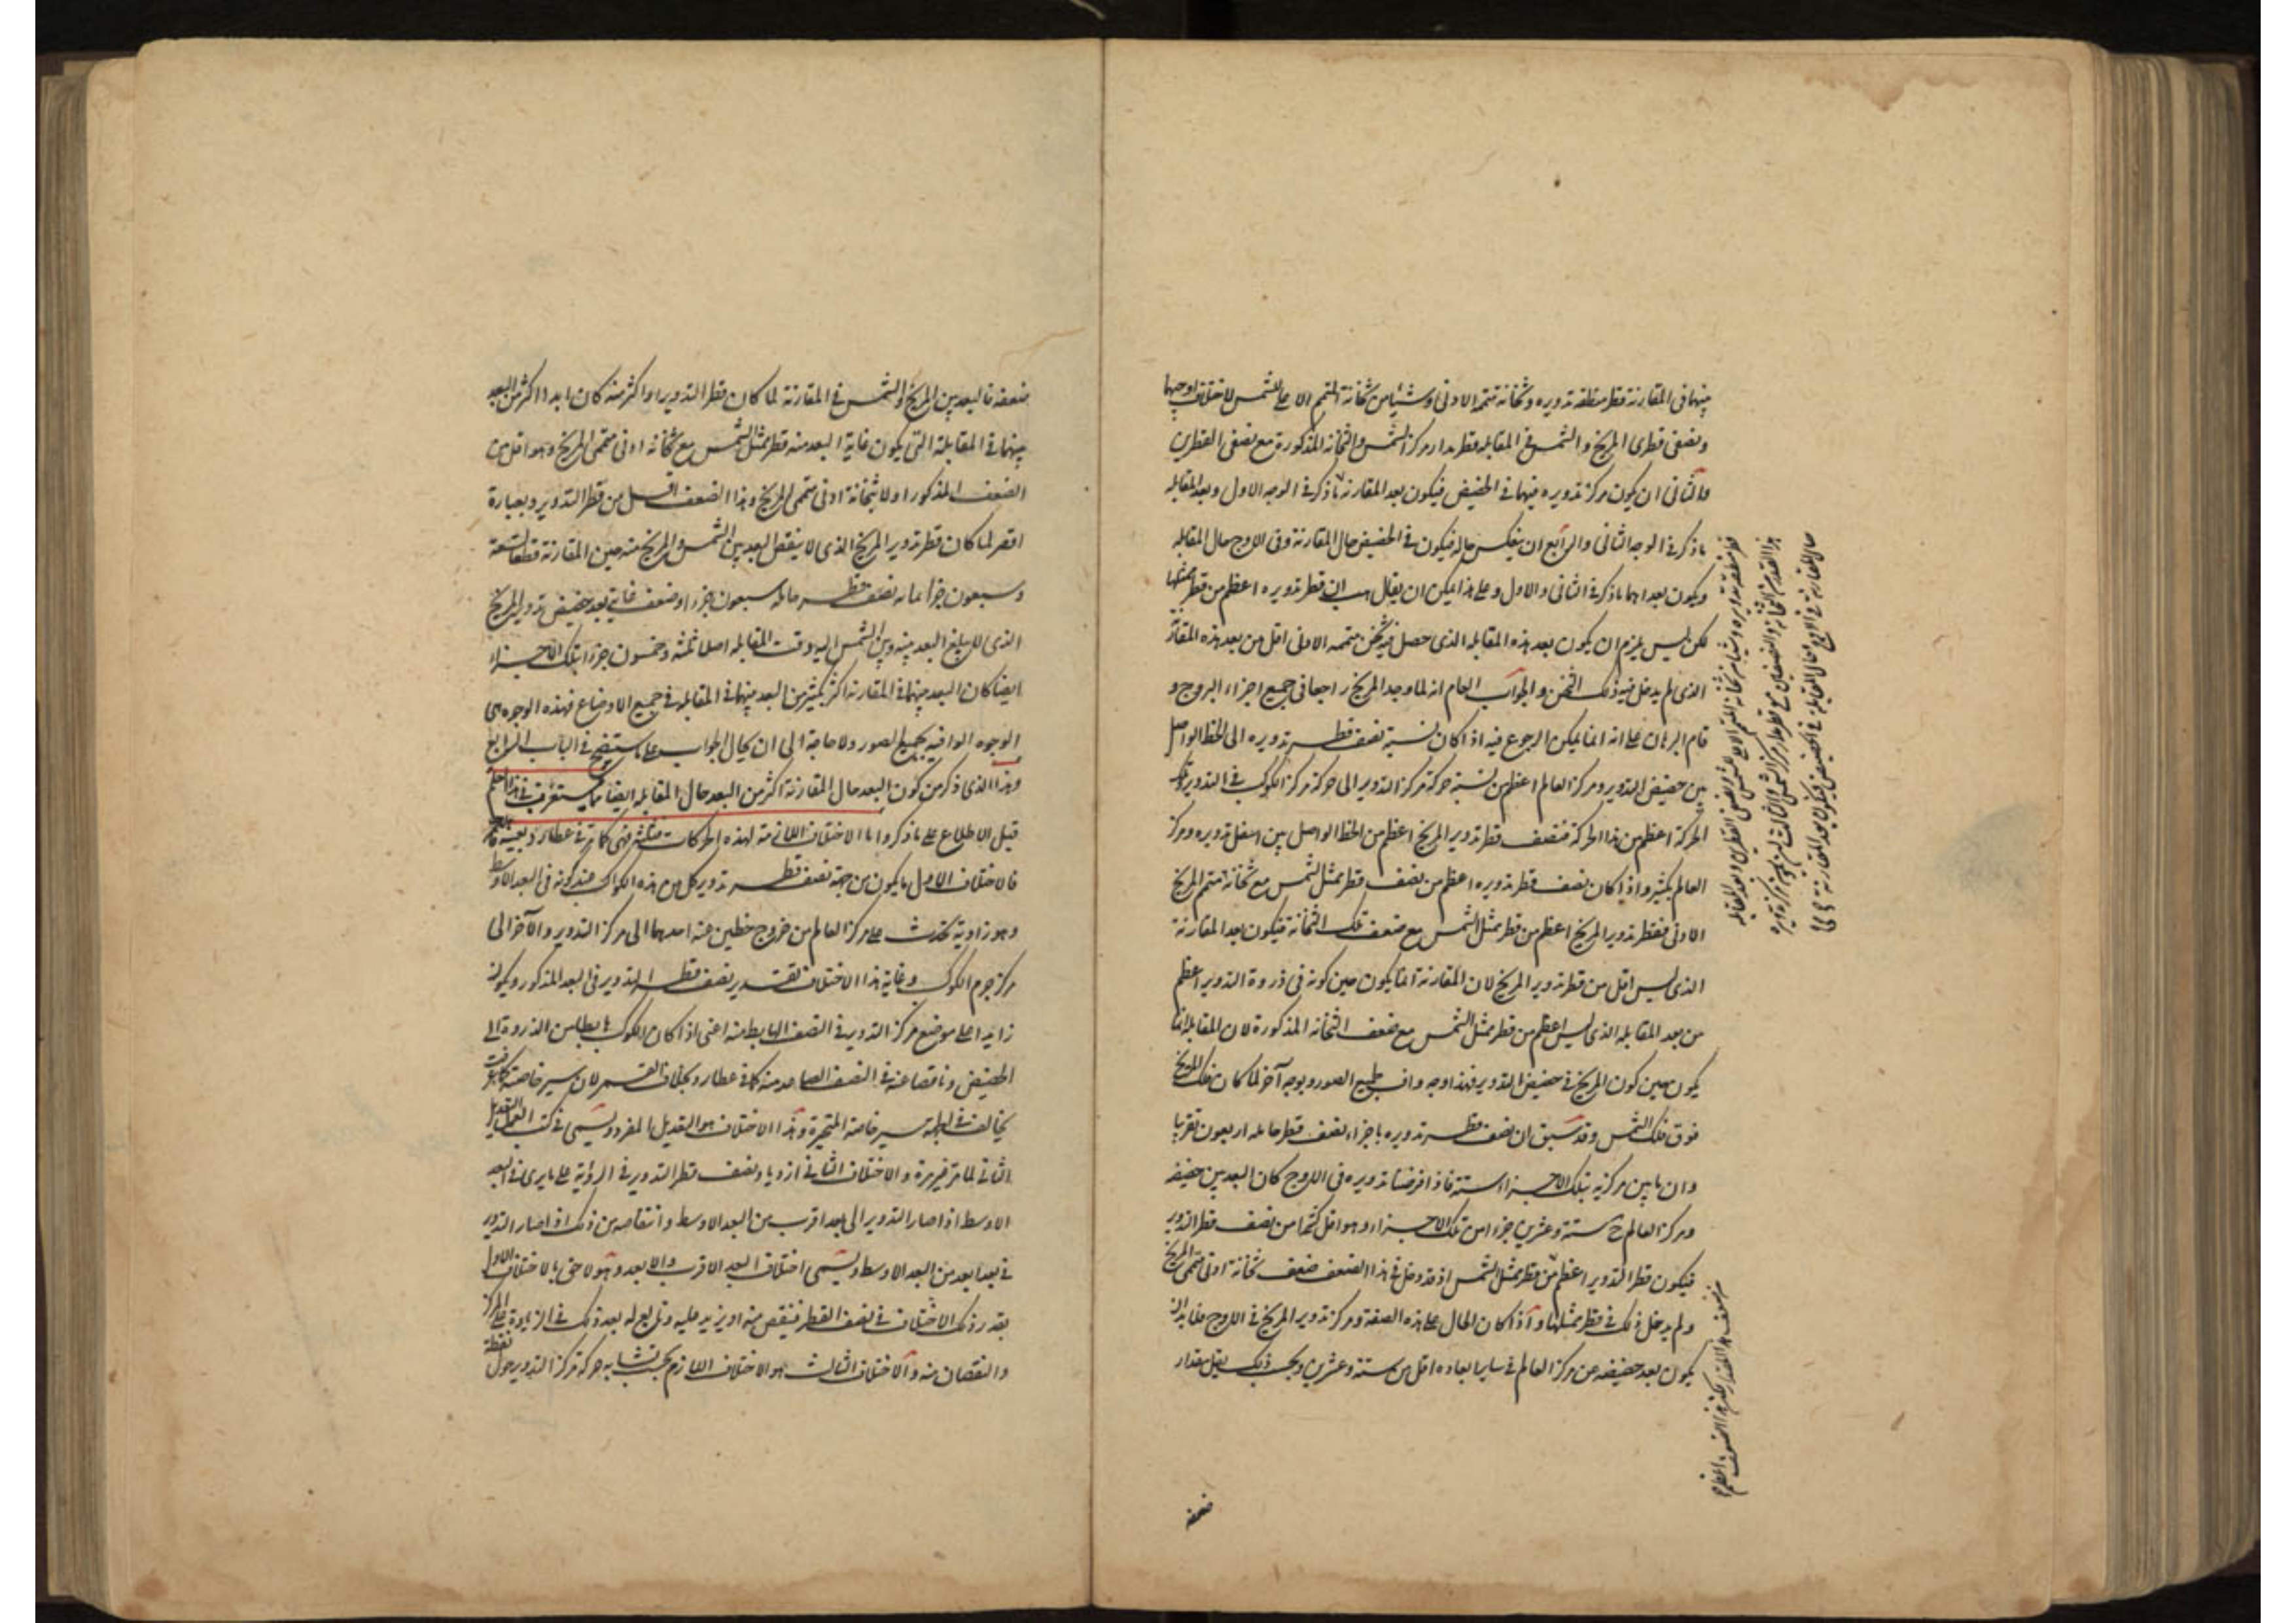 بينهما في المقارنة قطر منطقة تدويره وثخانة متممه الادنى وشيئا من ثخانة المتمم الاعلى للشمس لاختلاف اوجيهما
ونصفى قطرى المريخ والشمس وفي المقابلة قطر مدار مركز الشمس والثخانة المذكورة مع نصفى القطرين
والثانى ان يكون مركز تدويره فيهما في الحضيض فيكون بعد المقارنة ما ذكر في الوجه الاول وبعد المقابلة
ما ذكر في الوجه الثانى والرابع ان ينعكس حاله فيكون في الحضيض حال المقارنة وفى الاوج حال المقابلة
ويكون بعداهما ما ذكر في الثانى والاول وعلى هذا يمكن ان يقال هب ان قطر تدويره اعظم من قطر ممثلها
لكن ليس يلزم ان يكون بعد هذه المقابلة الذى حصل فيه ثخن متممه الادنى اقل من بعد هذه المقارنة
الذى لم يدخل فيه ذلك الثخن والجواب العام انه لما وجد المريخ راجعا في جميع اجزاء البروج و
قام البرهان على انه انما يمكن الرجوع فيه اذا كان نسبة نصف قطر تدويره الى الخط الواصل
بين حضيض التدوير ومركز العالم اعظم من نسبة حركة مركز التدوير الى حركة مركز الكوكب في التدوير وتلك
الحركة اعظم من هذا الحركة فنصف قطر تدوير المريخ اعظم من الخط الواصل بين اسفل تدويره ومركز
العالم بكثير واذا كان نصف قطر تدويره اعظم من نصف قطر ممثل الشمس مع ثخانة متمم المريخ
الادنى فقطر تدوير المريخ اعظم من قطر ممثل الشمس مع ضعف تلك الثخانة فيكون ابعد المقارنة
الذى ليس اقل من قطر تدوير المريخ لان المقارنة انما يكون حين كونه في ذروة التدوير اعظم
من بعد المقابلة الذى ليس اعظم من قطر ممثل الشمس مع ضعف الثخانة المذكورة لان المقابلة انما
يكون حين كون المريخ في حضيض التدوير فهذا وجه واف بجميع الصور وبوجه آخر لما كان فلك المريخ
فوق فلك الشمس وقد سبق ان نصف قطر تدويره باجزاء نصف قطر حامله اربعون تقريبا
وان ما بين مركزيه بتلك الاجزاء ستة فاذا فرضنا تدويره في الاوج كان البعد بين حضيضه
ومركز العالم ح ستة وعشرين جزءا من تلك الاجزاء وهو اقل كثيرا من نصف قطر التدوير
فيكون قطر التدوير اعظم من قطر ممثل الشمس اذ قد دخل في هذا الضعف ضعف ثخانة ادنى متممى المريخ
ولم يدخل ذلك في قطر ممثلها واذا كان الحال على هذه الصفة ومركز تدوير المريخ في الاوج فلا بد ان
يكون بعد حضيضه عن مركز العالم في ساير ابعاده اقل من ستة وعشرين وبحسب ذلك يقل مقدار
ضعفه
ضعفه فالبعد بين المريخ والشمس في المقارنة لما كان قطر التدوير او اكثر منه كان ابدا اكثر من البعد
بينهما في المقابلة التى يكون غاية البعد منه قطر ممثل الشمس مع ثخانة ادنى متممى المريخ وهو اقل من
الضعف المذكور اولا بثخانة ادنى متممى المريخ وهذا الضعف اقل من قطر التدوير وبعبارة
اقصر لما كان قطر تدوير المريخ الذى لا ينقص البعد بين الشمس والمريخ منه حين المقارنة قط تسعة
وسبعون جزءا بما به نصف قطر حامله سبعون جزءا وضعف غاية بعد حضيض تدوير المريخ
الذى لا يبلغ البعد بينه وبين الشمس اليه وقت المقابلة اصلا ثلثة وخمسون جزءا بتلك الاجزاء
ايضا كان البعد بينهما في المقارنة اكثر بكثير من البعد بينهما في المقابلة في جميع الاوضاع فهذه الوجوه هى
الوجوه الوافية بجميع الصور ولا حاجة الى ان يحال الجواب على ما ستضح في الباب الرابع
وهذا الذى ذكر من كون البعد حال المقارنة اكثر من البعد حال المقابلة ايضا مما يستغرب في هذا العلم
قبل الاطلاع على ما ذكروا اما الاختلافات اللازمة لهذه الحركات فثلثة فهى كما مر في عطارد بعينه
فالاختلاف الاول ما يكون من جهة نصف قطر تدوير كل من هذه الكواكب عند كونه في البعد الاوسط
وهو زاوية تحدث على مركز العالم من خروج خطين عنه احدهما الى مركز التدوير والآخر الى
مركز جرم الكوكب وغاية هذا الاختلاف بقدر نصف قطر التدوير في البعد المذكور ويكون
زايدا على موضع مركز التدوير في النصف الهابط منه اعنى اذا كان الكوكب هابطا من الذروة الى
الحضيض وناقصا عنه في النصف الصاعد منه كما في عطارد وبخلاف القمر لان سير خاصته كما عرفت
يخالف في الجهة سير خاصة المتحيرة وهذا الاختلاف هو التعديل المفرد ويسمى في كتب العمل التعديل
الثانى لما مر غير مرة والاختلاف الثانى ازدياد نصف قطر التدوير في الرؤية على ما يرى في البعد
الاوسط اذا صار التدوير الى بعد اقرب من البعد الاوسط وانتقاصه من ذلك اذا صار التدوير
في بعد ابعد من البعد الاوسط ويسمى اختلاف البعد الاقرب والابعد وهو لاحق بالاختلاف الاول
بقدر ذلك الاختلاف في نصف القطر فينقص منه او يزيد عليه وتابع له بعد ذلك في الزيادة على المركز
والنقصان منه والاختلاف الثالث هو الاختلاف اللازم بحسب تشابه حركة مركز التدوير حول نقطة